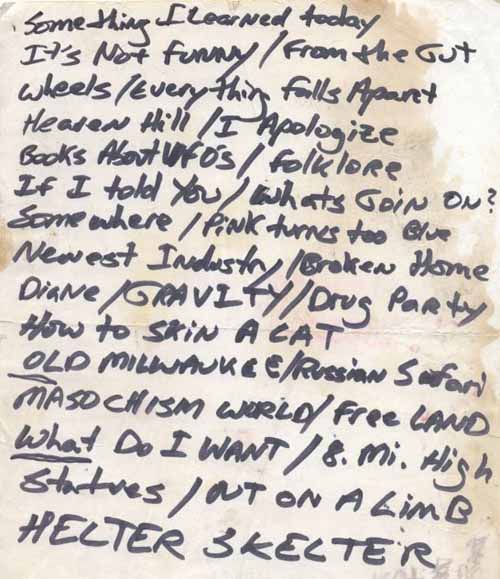 Something I Learned today
It's Not Funny / From the Gut
Wheels / Everything Falls Apart
Heaven Hill / I Apologize
Books About UFO's / Folklore
If I told You / Whats Goin On?
Somewhere / Pink turns too Blue
Newest Industry / Broken Home
Diane / GRAVITY / Drug Party
How to SKIN A CAT
OLD MILWAUKEE / Russian Safari
MASOCHISM WORLD / Free LAND
What Do I WANT / 8. Mi. High
Statues / OUT ON A LimB
HELTER SKELTER